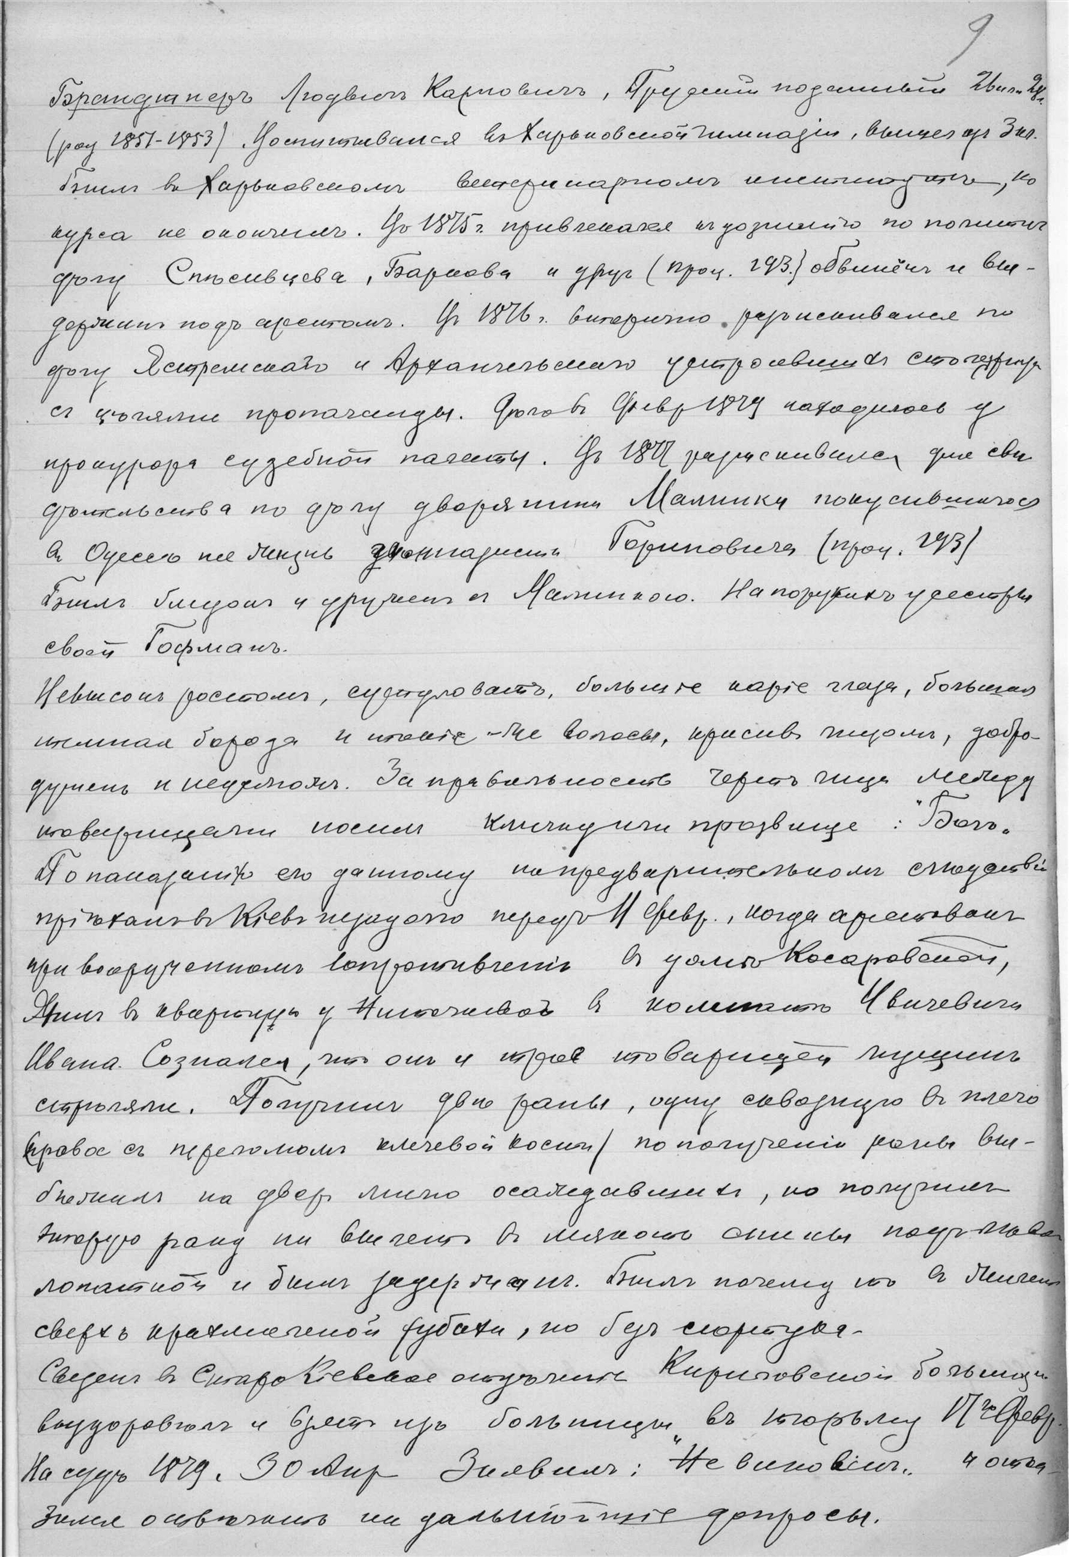 9
Брандтнеръ Людвигъ Карповичъ, Прускій подданный 26 или 28 л.
(род 1851-1853). Воспитывался въ Харьковской гимназіи, вышел изъ 3 кл.
Былъ въ Харьковскомъ ветеринарномъ институтѣ, но
курса не окончилъ. Въ 1875 г. привлекался къ дознанію по политич
дѣлу Спѣсивцева, Баркова и друг (проц. 193.) обвинёнъ и вы-
держанъ подъ арестомъ. Въ 1876 г. вторично разыскивался по
дѣлу Ястремскаго и Архангельскаго устроевшихъ
съ цѣлями пропаганды. Дѣло въ Февр 1879 находилось у
прокурора судебной палаты. Въ 1877 разыскивался для сви
дѣтельства по дѣлу дворянина Малинки покусившагося
въ Одессѣ на жизнь Гориновича (проц. 193)
Былъ близокъ и друженъ съ Малинкою. На порукахъ у сестры
своей Гофманъ.
Невысокъ ростомъ, сутуловатъ, большіе каріе глаза, большая
темная борода и такіе-же волосы, красивъ лицомъ, добро-
душенъ и недуменъ. За правильность чертъ лица между
товарищами носилъ кличку или прозвище: "Богъ"
По показанію его данному на предварительномъ слѣдствіи
пріѣхалъ въ Кіевъ незадолго передъ 11 февр., когда арестованъ
при вооруженномъ сопротивленіи въ домѣ Косаровской,
Жилъ въ квартирѣ у въ комнатѣ Ивичевича
Ивана. Сознался, что онъ и трое товарищей мущинъ
стрѣляли. Получилъ двѣ раны, одну сквозную въ плечо
(правое съ переломомъ ключевой кости) по полученіи раны вы-
бѣжалъ на дворъ мимо осаждавшихъ, но получилъ
вторую рану на вылетъ въ мякоть спины подъ лѣвой
лопаткой и былъ задержанъ. Былъ почему то въ жилетѣ
сверхъ крахмаленой рубахи, но безъ сюртука.
Сведенъ въ Старо Кіевское отдѣленіе Кириловской больницы
выздоровѣлъ и взятъ изъ больницы въ тюрьму 17го Февр.
На судѣ 1879. 30 Апр Заявилъ: "Не виновенъ" и отка-
зался отвѣчать на дальнѣйшіе допросы.